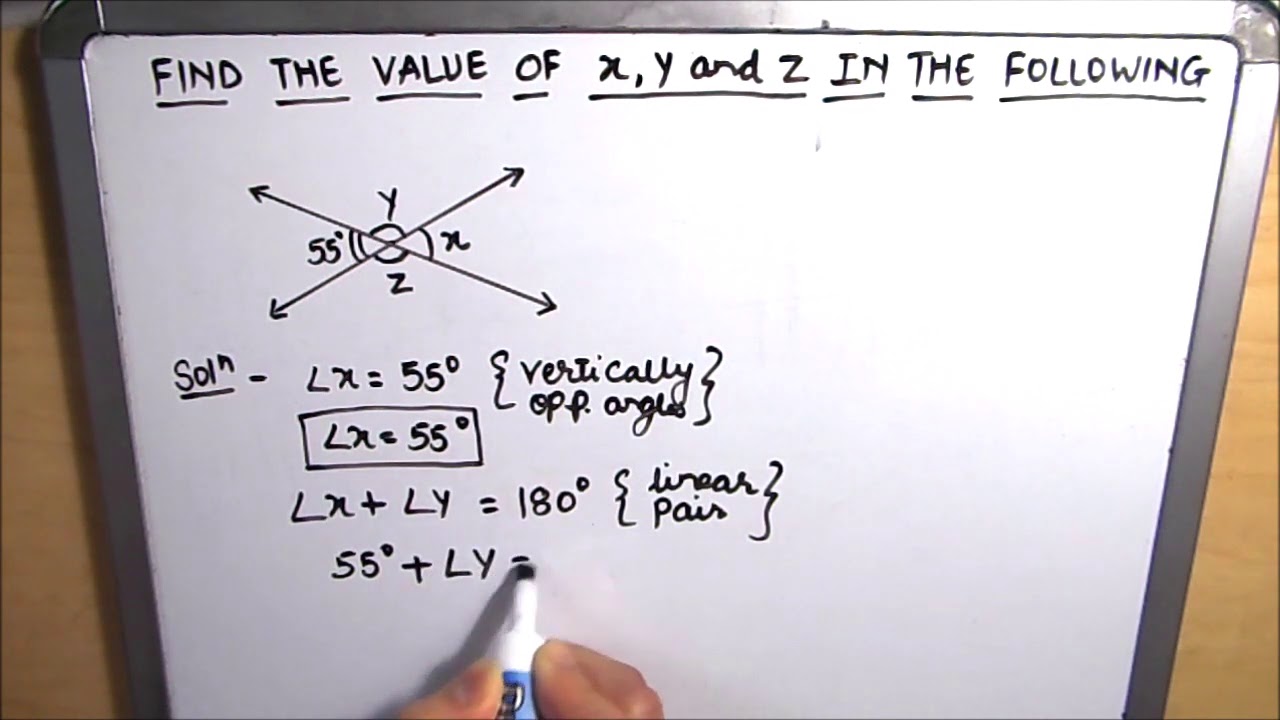 FIND THE VALUE OF x, Y and Z IN THE FOLLOWING
Y
55° x
Z
Solⁿ - ∠x = 55° { vertically
opp. angles }
∠x = 55°
∠x + ∠Y = 180° { linear
pair }
55° + ∠Y =